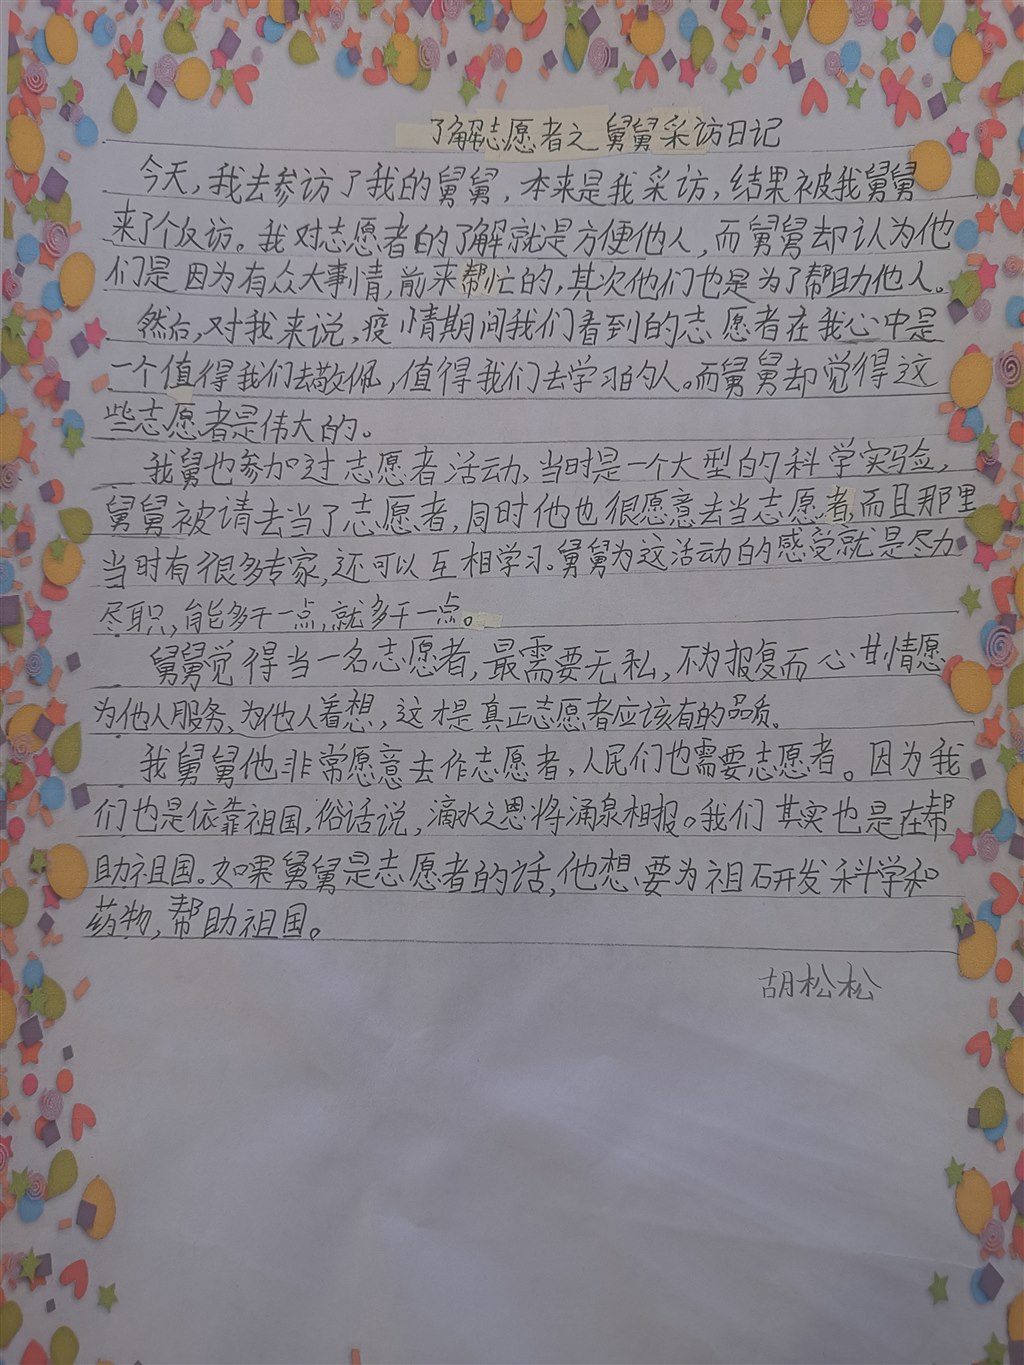 了解志愿者之舅舅采访日记
今天,我去参访了我的舅舅,本来是我采访,结果被我舅舅
来了个反访。我对志愿者的了解就是方便他人,而舅舅却认为他
们是因为有众大事情,前来帮忙的,其次他们也是为了帮助他人。
然后,对我来说,疫情期间我们看到的志愿者在我心中是
一个值得我们去敬佩,值得我们去学习的人。而舅舅却觉得这
些志愿者是伟大的。
我舅也参加过志愿者活动、当时是一个大型的科学实验,
舅舅被请去当了志愿者,同时他也很愿意去当志愿者,而且那里
当时有很多专家,还可以互相学习。舅舅为这活动的感受就是尽力
尽职,能多干一点,就多干一点。
舅舅觉得当一名志愿者,最需要无私,不为报复而心甘情愿
为他人服务、为他人着想,这才是真正志愿者应该有的品质。
我舅舅他非常愿意去作志愿者,人民们也需要志愿者。因为我
们也是依靠祖国,俗话说,滴水之恩将涌泉相报。我们其实也是在帮
助祖国。如果舅舅是志愿者的话,他想要为祖石研发科学和
药物,帮助祖国。
胡松松